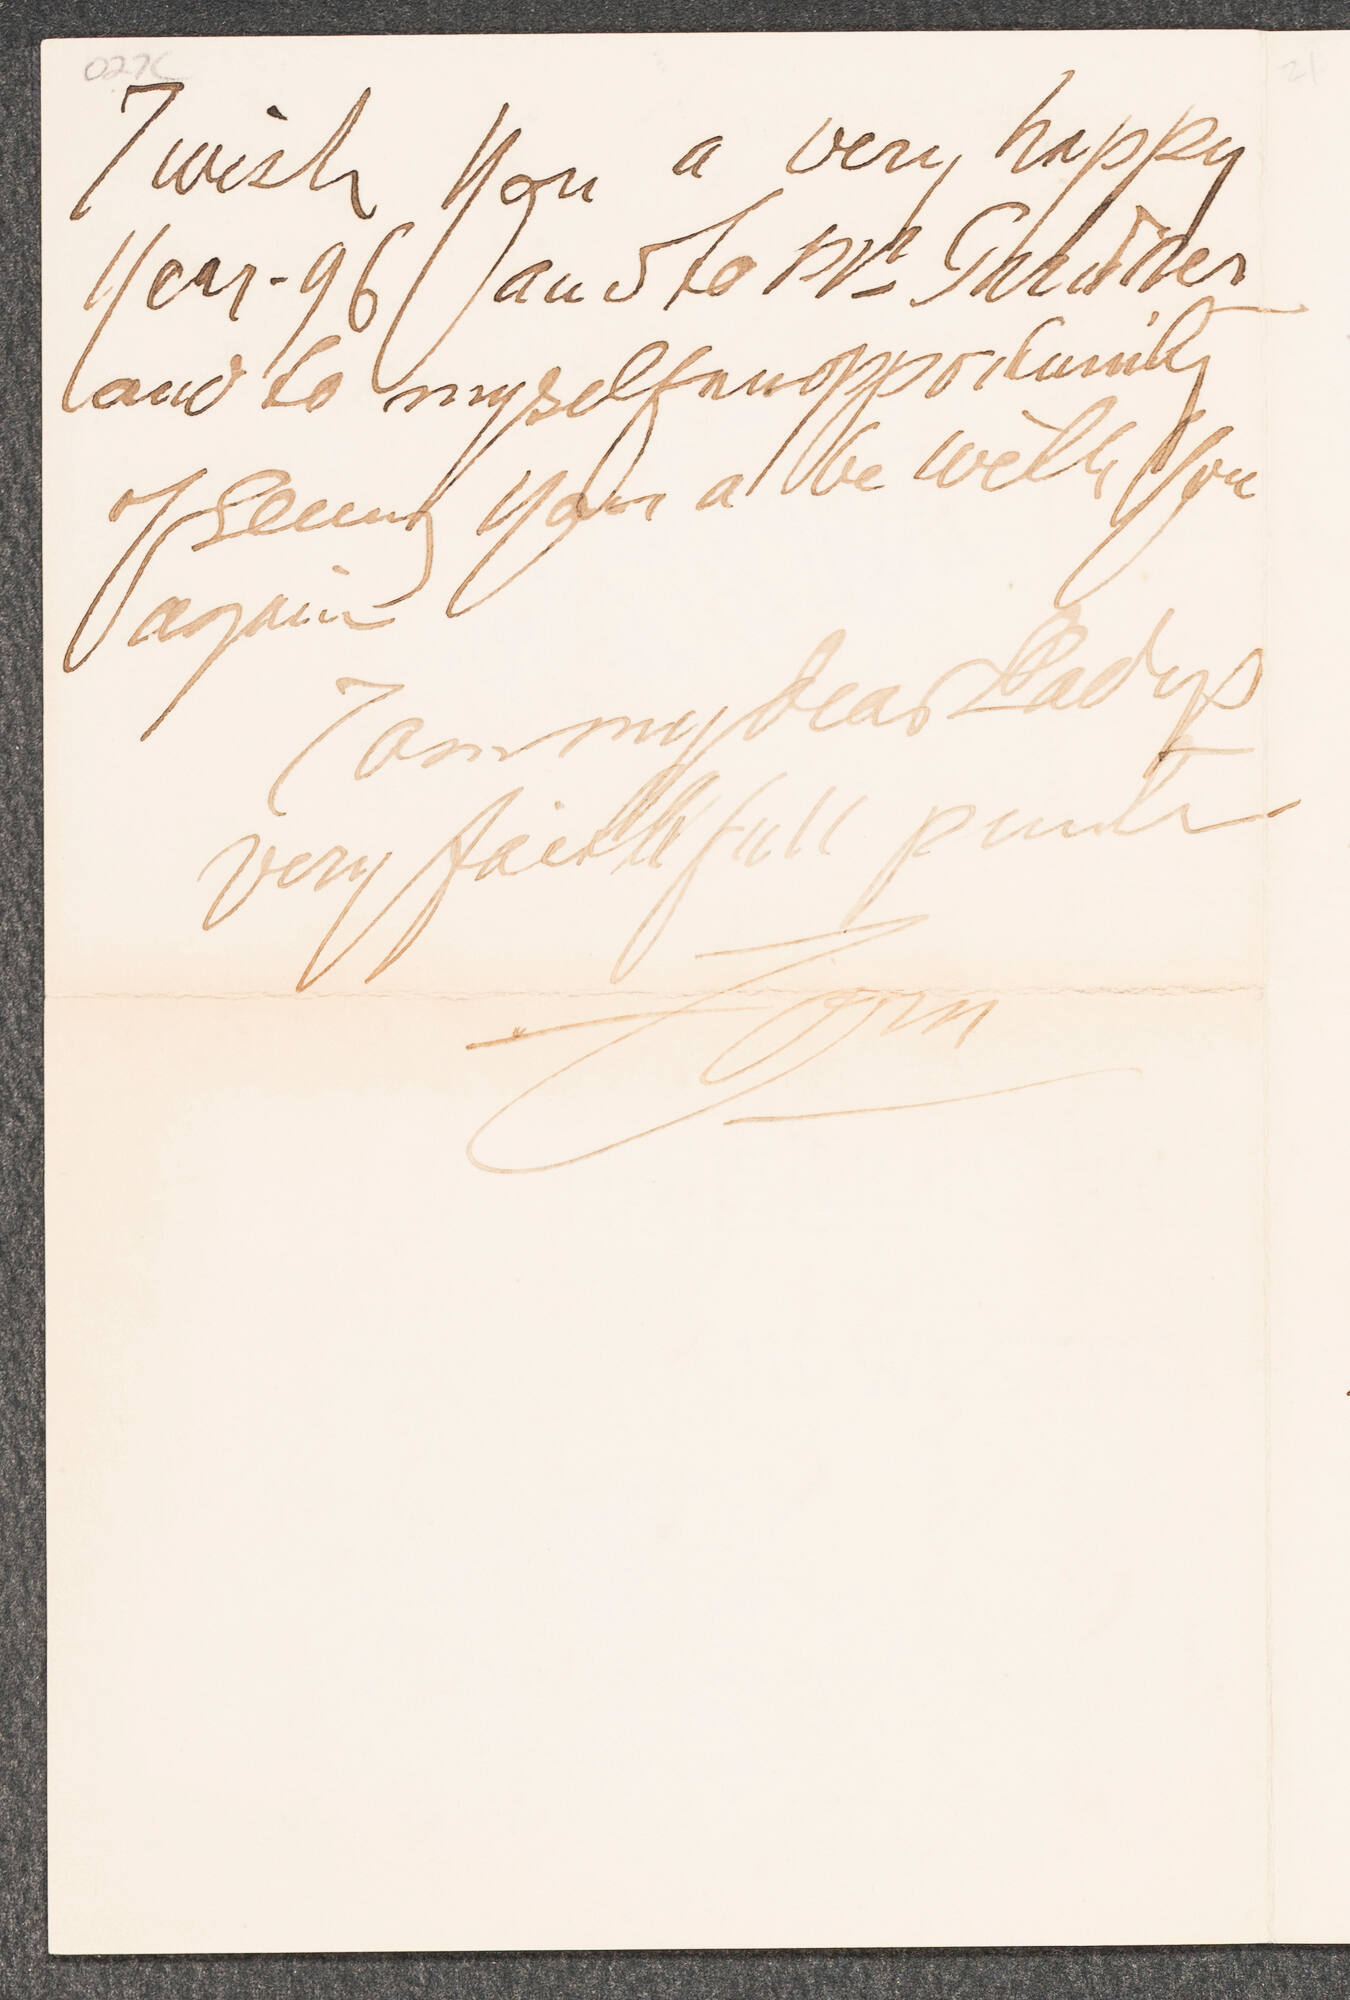 027C
21
I wish you a very happy
Year-96 and to Mr Gardner
and to myself an opportunity
of seeing you a be with you
again
I am my dear Ladys
very faithfull
Zorn